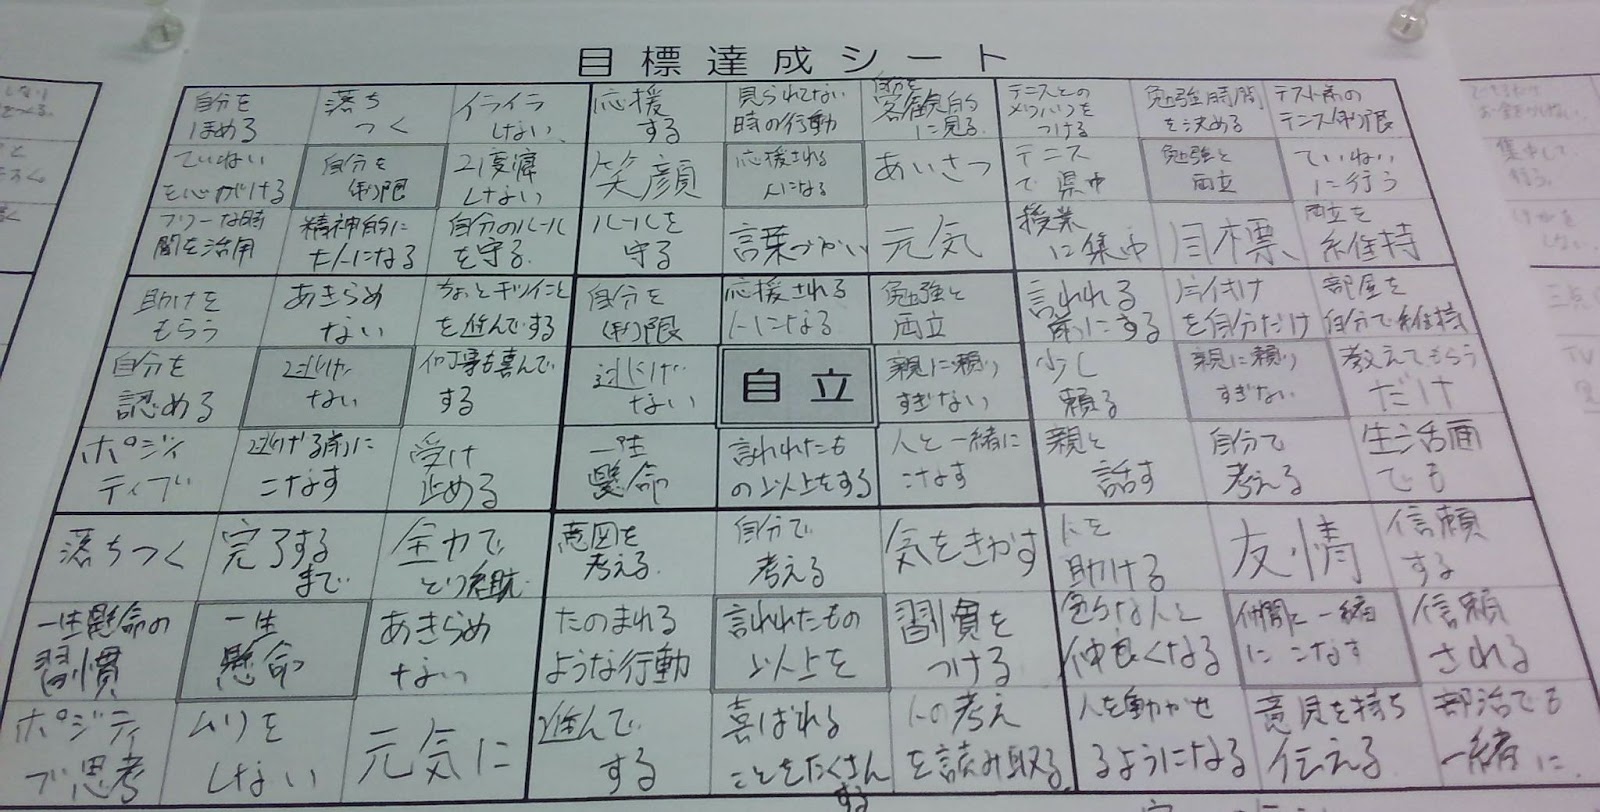 目標達成シート
自分を
ほめる
落ち
つく
イライラ
しない
応援
する
見られてない
時の行動
自分を
客観的
に見る
テニスとの
メリハリを
つける
勉強時間
を決める
テスト前の
テニス制限
ていねい
を心がける
自分を
制限
2度寝
しない
笑顔
応援される
人になる
あいさつ
テニス
で県中
勉強と
両立
ていねい
に行う
フリーな時
間を活用
精神的に
大人になる
自分のルール
を守る
ルールを
守る
言葉づかい
元気
授業
に集中
目標
両立を
維持
助けを
もらう
あきらめ
ない
ちょっとキツイこと
を進んでする
自分を
制限
応援される
人になる
勉強と
両立
言われる
前にする
片付け
を自分だけ
部屋を
自分で維持
自分を
認める
逃げ
ない
何事も喜んで
する
逃げ
ない
自立
親に頼り
すぎない
少し
頼る
親に頼り
すぎない
教えてもらう
だけ
ポジティ
ティブ
逃げる前に
こなす
受け
止める
一生
懸命
言われたも
の以上をする
人と一緒に
こなす
親と
話す
自分で
考える
生活面
でも
落ちつく
完了する
まで
全力で
とり組む
意図を
考える
自分で
考える
気をきかす
人を
助ける
友情
信頼
する
一生懸命の
習慣
一生
懸命
あきらめ
ない
たのまれる
ような行動
言われたもの
以上を
習慣を
つける
色々な人と
仲良くなる
仲間と一緒
にこなす
信頼
される
ポジティ
ブ思考
ムリを
しない
元気に
進んで
する
喜ばれる
ことをたくさん
する
人の考え
を読み取る
人を動かせ
るようになる
意見を持ち
伝える
部活でも
一緒に